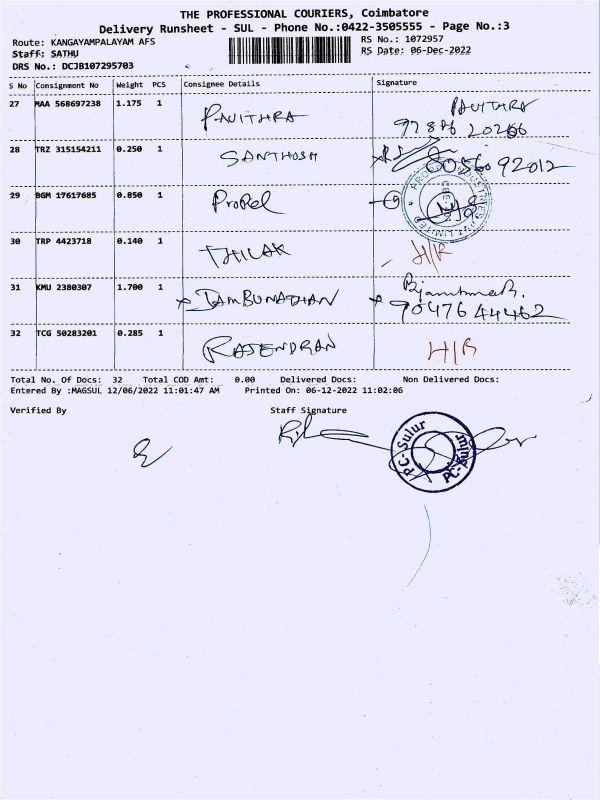 THE PROFESSIONAL COURIERS, Coimbatore
Delivery Runsheet - SUL - Phone No.:0422-3505555 - Page No.:3
Route: KANGAYAMPALAYAM AFS
RS No.: 1072957
Staff: SATHU
RS Date: 06-Dec-2022
DRS No.: DCJB107295703
S No Consignment No Weight PCS Consignee Details Signature
27 MAA 568697238 1.175 1 PAVITHRA PAVITHRA
28 TRZ 315154211 0.250 1 SANTHOSH
29 BGM 17617685 0.850 1 PROPEL
30 TRP 4423718 0.140 1 THILAK H/R
31 KMU 2380307 1.700 1 JAMBUNATHAN
90476 44462
32 TCG 50283201 0.285 1 RAJENDRAN H/R
Total No. Of Docs: 32 Total COD Amt: 0.00 Delivered Docs: Non Delivered Docs:
Entered By :MAGSUL 12/06/2022 11:01:47 AM Printed On: 06-12-2022 11:02:06
Verified By Staff Signature
PC-Sulur
PC-Sulur